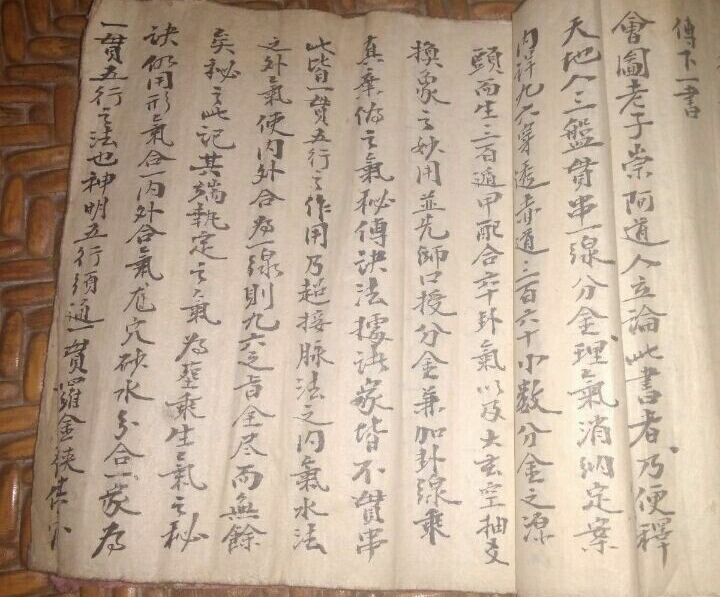 傳下一書
會圖老子崇阿道人立論此書者乃便釋
天地人三盤貫串一線分金理氣消納定案
內詳九六穿透赤道三百六十小數分金之源
頭而生三百遁甲配合六十卦氣以及大玄空抽爻
換象之妙用並先師口授分金兼加卦線乘
真棄偽之氣秘傳訣法據諸家皆不貫串
此皆一貫五行之作用乃超接脉法之內氣水法
之外氣使內外合為一線則九六之旨全尽而無餘
矣秘之此記其端執定之氣為聖乘生氣之秘
訣似用形氣合一內外合氣龍穴砂水分合一家為
一貫五行之法也神明五行須通一貫羅金